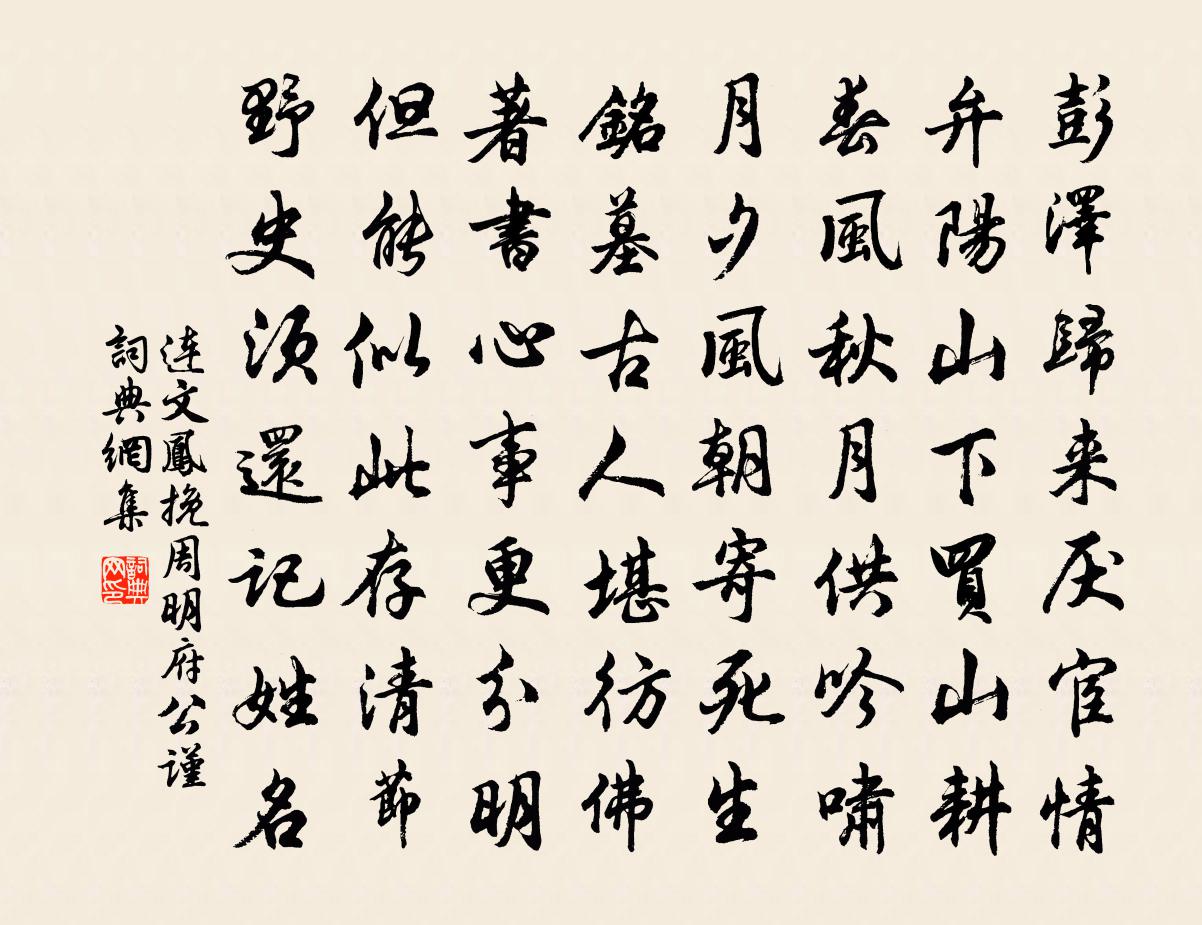 彭澤歸来厌宦情
弁陽山下買山耕
春風秋月供吟嘯
月夕風朝寄死生
銘墓古人堪彷佛
著書心事更分明
但能似此存清節
野史須還記姓名
连文鳳挽周明府公謹
詞典網集
詞典网印